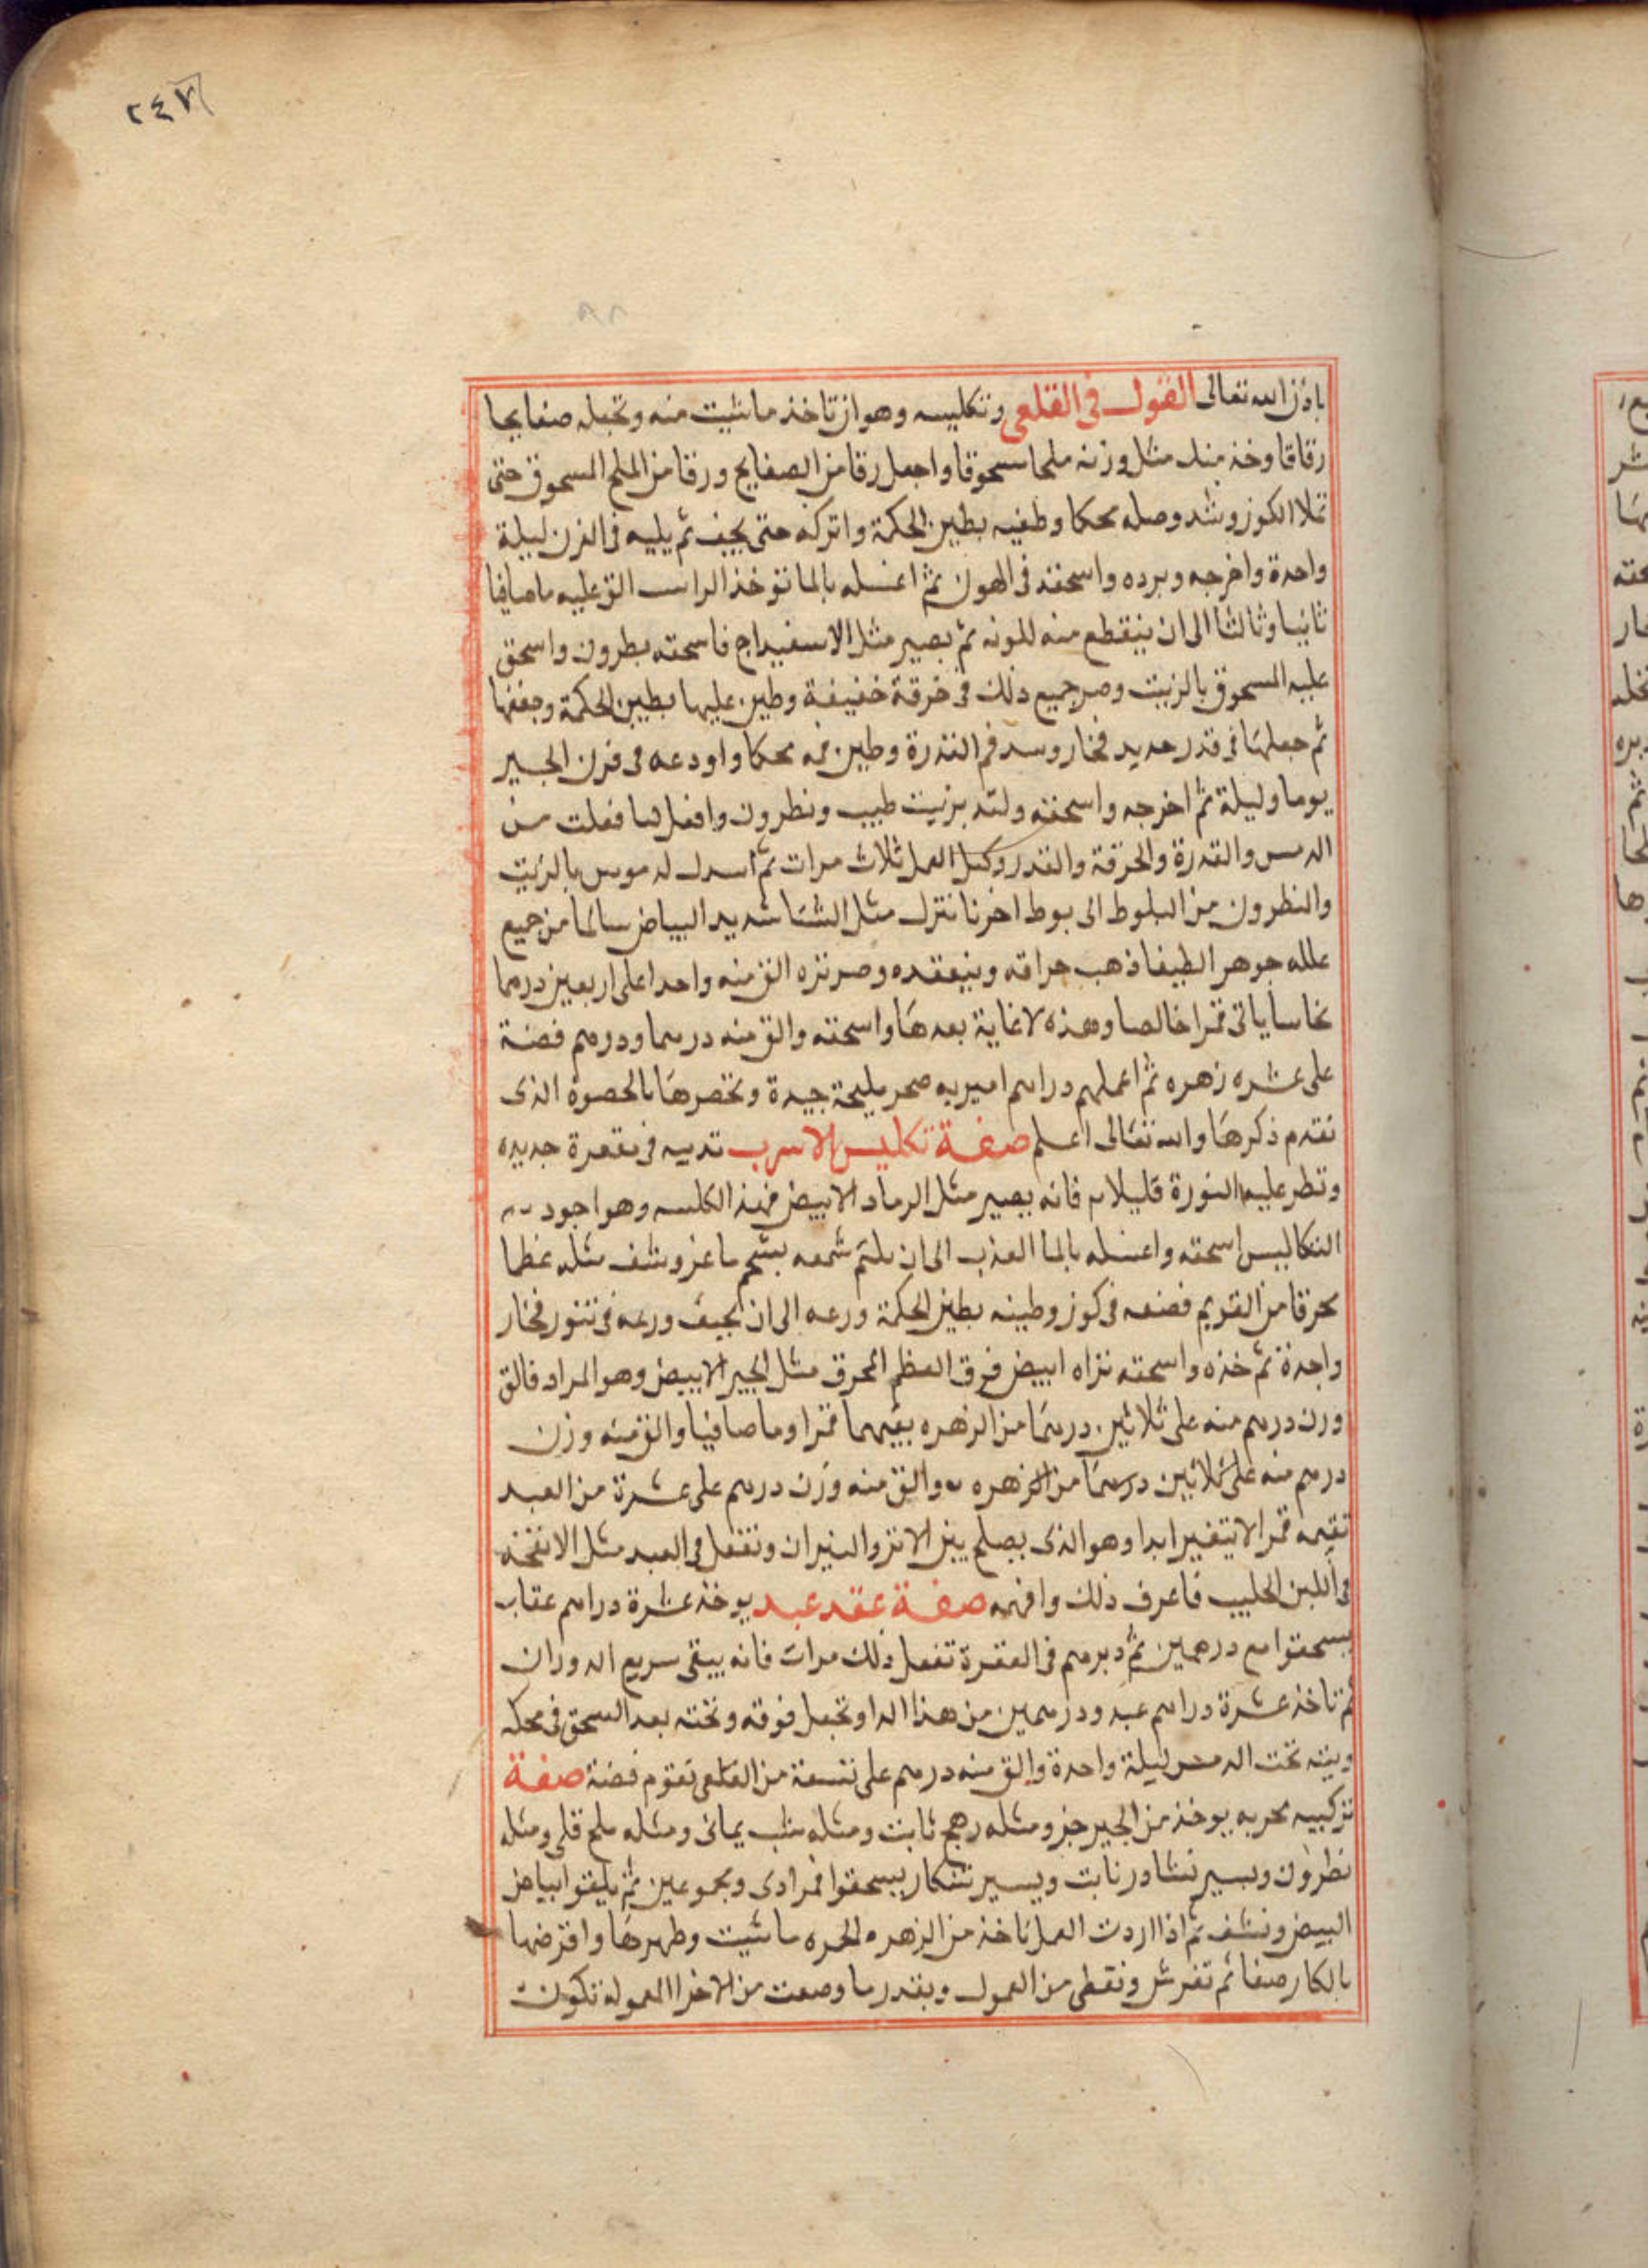 ٢٤٧
٩٨
باذن الله تعالى القول فى القلعى وتكليسه وهو ان تاخذ ما شيت منه وتجعله صفايحا
رقاقا وخذ منك مثل وزنه ملحا مسحوقا واجعل رقا من الصفايح ورقا من الملح المسحوق حتى
تملا الكوز وشد وصله محكا وطينه بطين الحكمة واتركه حتى يجف ثم يليه فى الفرن ليلة
واحدة واخرجه وبرده واسحقه فى الهون ثم اغسله بالما توخذ الراسب الق عليه ما صافيا
ثانيا وثالثا الى ان ينقطع منه للونه ثم يصير مثل الاسفيداج فاسحقه بطرون واسحق
عليه المسحوق بالزيت وصر جميع ذلك فى خرقة خفيفة وطين عليها بطين الحكمة وجففها
ثم جعلها فى قدر حديد فخار وسد فم القدرة وطين فمه محكا واودعه فى فرن الجير
يوما وليلة ثم اخرجه واسحقه ولته بزيت طيب ونطرون وافعل لها فعلت من
الدمس والقدرة والخرقة والقدر وكمل العمل ثلاث مرات ثم اسدل له موس بالزيت
والنظرون من البلوط الى بوط اخر نا نتزل مثل الشتا شديد البياض سالما من جميع
علله جوهر الطيفا ذهب حراقه وينعقده وصر نزه الق منه واحدا على اربعين درهما
نحاسا ياتى قمرا خالصا وهذه لا غاية بعدها واسحقه والق منه درهما ودرهم فضة
على عشره زهره ثم اعملهم دراهم اميريه صحر مليحة جيدة وتخصرها بالحصوة الذى
تقدم ذكرها والله تعالى اعلم صفة تكليس الاسرب تدبيه فى مقعرة جديده
وتطر عليه النورة قليلا فانه يصير مثل الرماد الابيض فهذا الكلسه وهو اجود
التكاليس اسحقه واغسله بالما العذب الى ان يلتم شمعه بشحم ماعز ونشف مثله عظما
محرقا من القديم فضعه فى كوز وطينه بطين الحكمة ودعه الى ان يجيف ودعه فى تنور فخار
واحدة ثم خذه واسحقه تراه ابيض فرق العظم المحرق مثل الجير الابيض وهو المراد فالق
وزن درهم منه على ثلاثين درهما من الزهره بقيمها قمرا وما صافيا والق منه وزن
درهم منه على ثلاثين درهما من الزهره والق منه وزن درهم على عشرة من العبد
تقيمه قمر الا يتغير ابدا وهو الذى يصلح بين الاتز والنيران وتفعل فى العبد مثل الانفخه
فى اللبن الحليب فاعرف ذلك وافهمه صفة عقد عبد يوخذ عشرة دراهم عقاب
يسحقوا مع درهمين ثم دبرهم فى العقرة تفعل ذلك مرات فانه يبقى سريع الدوران
ثم تاخذ عشرة دراهم عبد ودرهمين من هذا الدا وتجعل فوقه وتحته بعد السحق فى محكه
وبيته تحت الدمس ليلة واحدة والق منه درهم على تسعة من القلعى تقوم فضة صفة
تركيبه محربه يوخذ من الجير جز ومثله رهج ثابت ومثله شب يمانى ومثله ملح قلى ومثله
نطرون ويسير نشادر ثابت ويسير تنكار يسحقوا فرادى ومجموعين ثم يلقوا ببياض
البيض ونشف ثم اذا اردت العمل تاخذ من الزهره الحره ما شيت وطهرها واقرضها
بالكار صفا ثم تفرش ونقطى من العمول وبقدر ما وصعت من الاخرا المعوله تكون